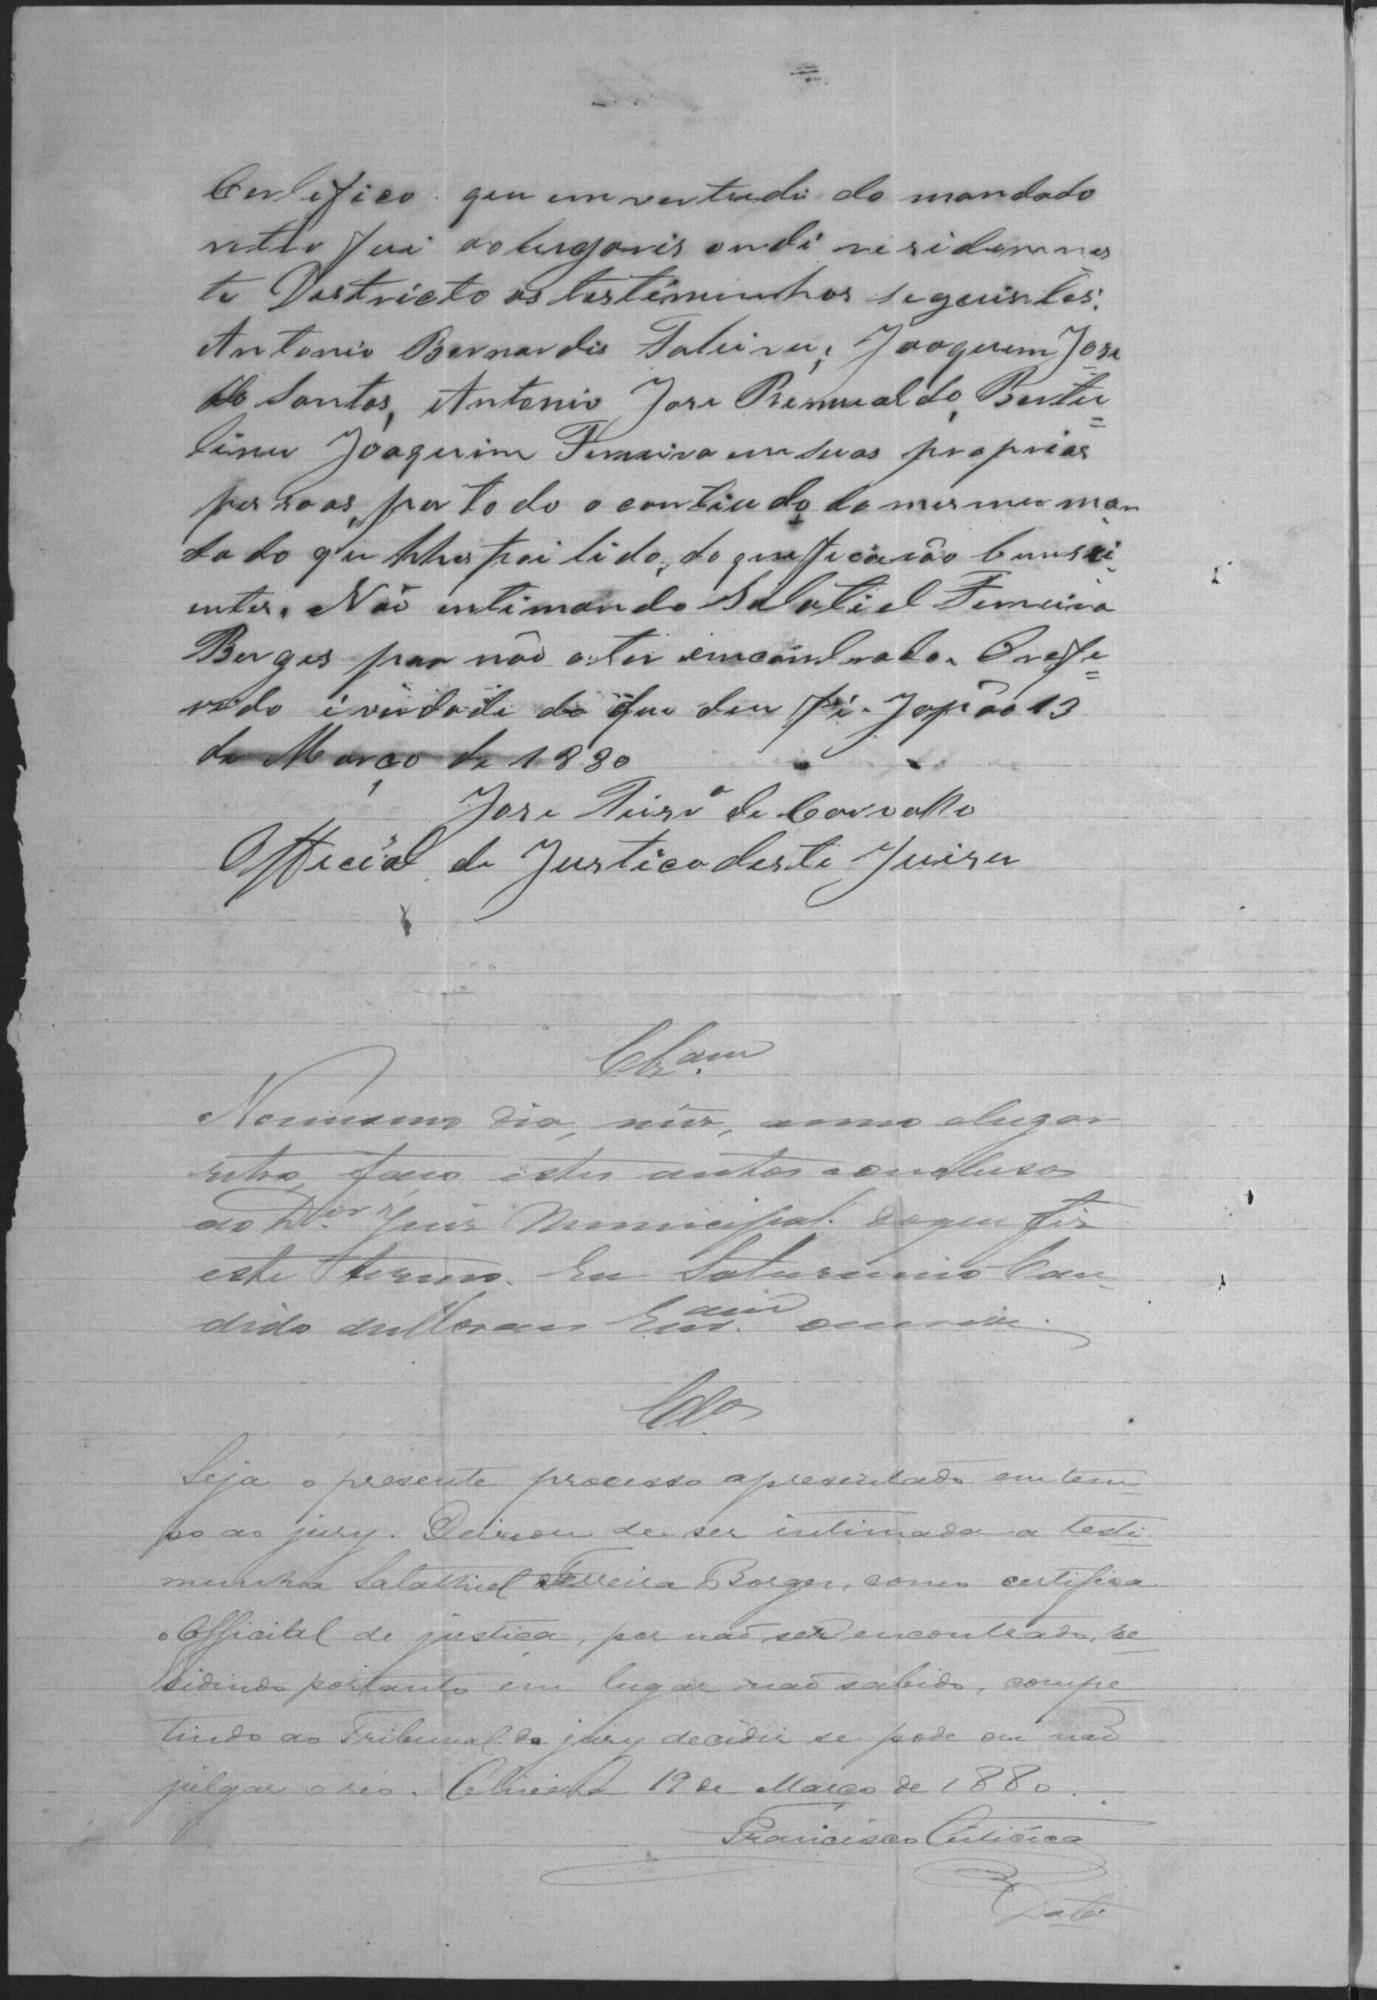 Certifico que em vertude do mandado
retro fui aos lugaris ondi residem nes
te Destricto as testimunhas seguintes:
Antonio Bernardis Joaquim Jose
do Santos, Antonio Jose Remualdo, Bertu=
linu Joaquim Ferreira em suas proprias
pessoas, por todo o contiudo do mesmu man
dado qu lhes foi lido, do que ficarão bem sci
entes. Não entimando Salatiel Ferreira
Borges por não o ter emcontrado. O refe=
rido é verdade do que dou fé. Japão 13
de Março de 1880
Jose de Carvalho
Official de Justica desti Juiso
Clzam
No mesmo dia, mez, anno e lugar
retro, faço estes autos conclusos
ao Dor Juiz Municipal. do que fiz
este termo. Eu Saturnino Can-
dido de Moraes Esam. escrevi.
Clos
Seja o presente processo apresentado em tem
po ao jury. Deixou de ser intimada a teste
munha Salathiel Ferreira Borges, como certifica
o Official de justiça, por não ser encontrado, re
sidindo portanto em lugar não sabido, compe
tindo ao Tribunal do jury decidir se pode ou não
julgar o reo. 19 de Março de 1880.
Francisco
Data